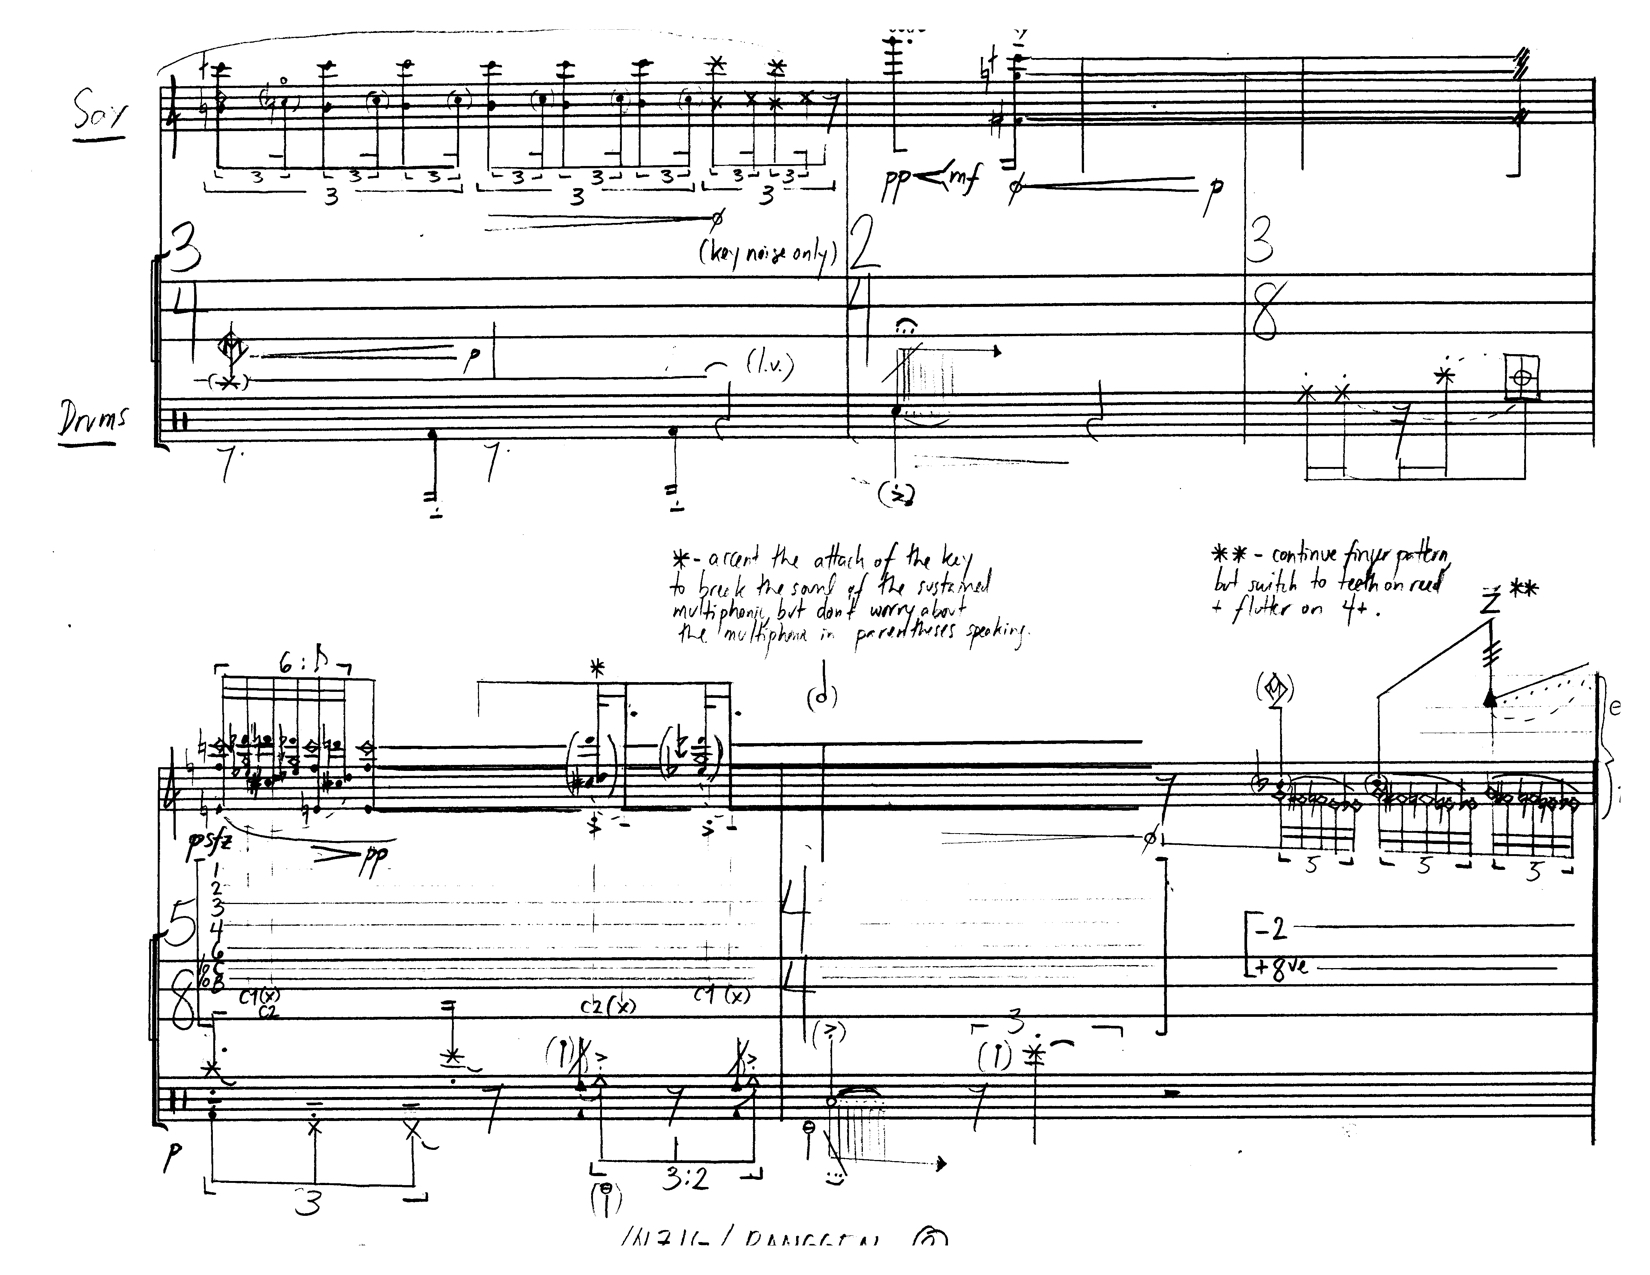 Sax
3 3 3 3 3 3 3 3
3 3 3
pp mf p
(key noise only)
3 4 2 4 3 8
p
(l.v.)
Drums
*- accent the attack of the key
to break the sound of the sustained
multiphonic, but don't worry about
the multiphonic in parentheses speaking.
** - continue finger pattern,
but switch to teeth on reed
+ flutter on 4+.
Z **
6:
*
psfz
pp
5 5 5
1
2
3
4
6
C
B
5 8 4 4
C1(x)
C2
C2(x)
C1(x)
-2
+8ve
3
p
3
3:2